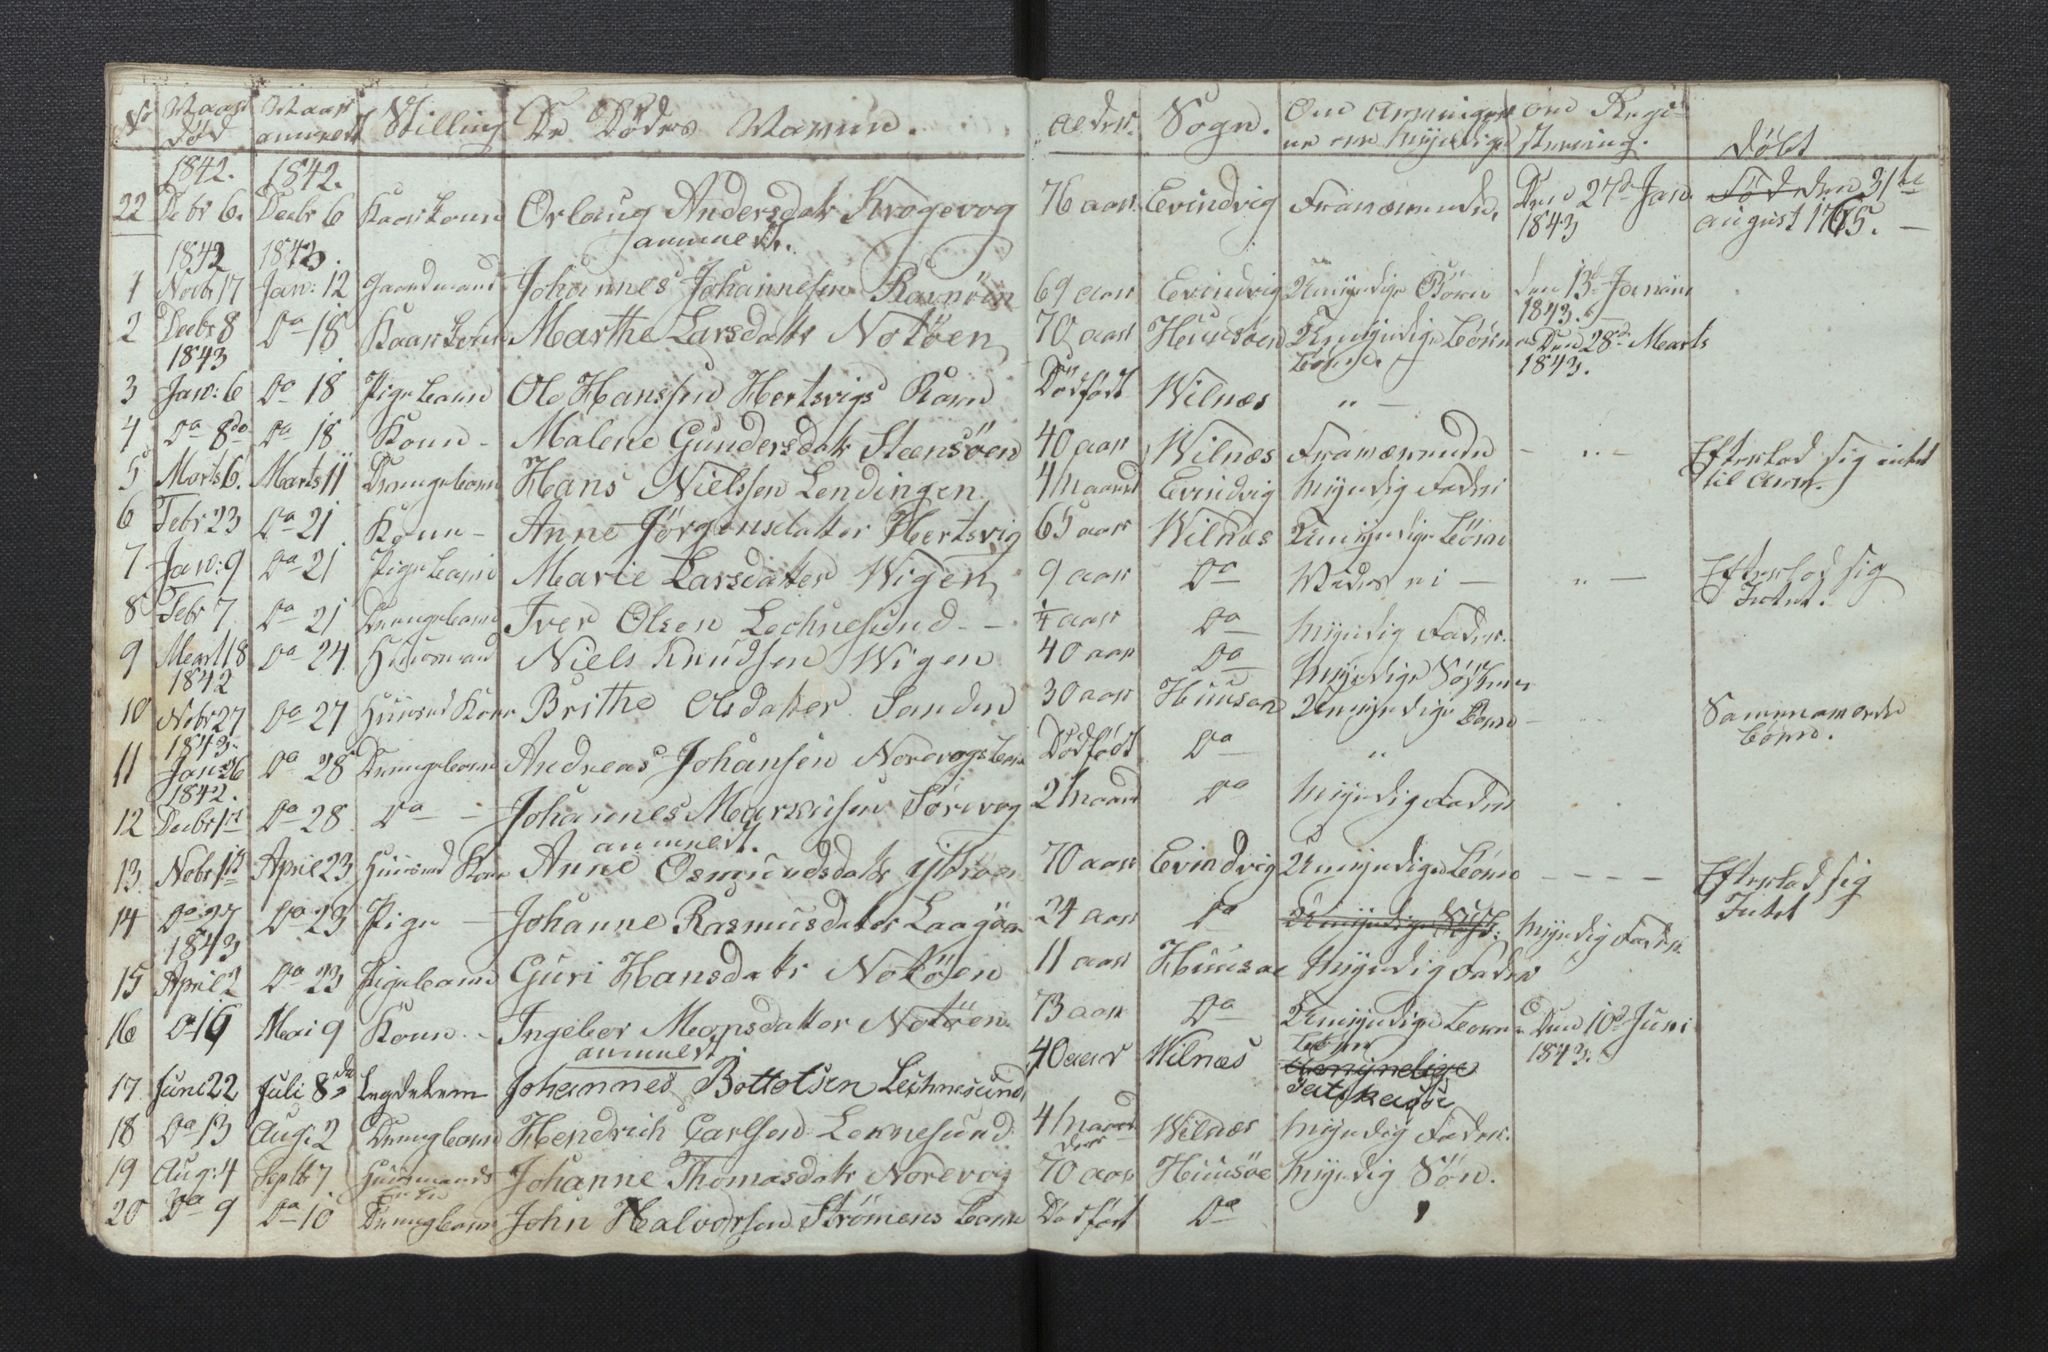 No Naar Død Naar anmeldt Stilling De Dødes Navne. Alder. Sogn. Om Arvingerne ere Myndige om Registering. Døbt
1842. 1842.
22 Debr 6. Debr 6 Kaarkone Orlaug Andersdatr Krogevog 76 aar Evindvig Fraværende. Den 27de Jan. 1843 Død den 31te august 1765. —
anmeldt.
1842 1843.
1 Nobr 17 Jan: 12 Gaardmand Johannes Johannesen Ravnøen 69 aar Evindvig Umyndige Børn den 13d Januari 1843.
2 Debr 8 Do 18 Kaarkone Marthe Larsdatr Notøen 70 aar Huusøen Umyndige Børns Børn Den 28de Marts 1843.
1843
3 Jan: 6 Do 18 Pigebarn Ole Hanssen Hertsvigs Barn Dødfødt Wilnæs " —
4 Do 8de Do 18 Kone - Malene Gundersdatr Steensøen 40 aar Wilnæs Fraværende - " - Efterlod sig intet til Arv.
5 Marts 6. Marts 11 Drengebarn Hans Nielssen Lendingen 4 Maaned Evindvig Myndig Fader
6 Febr 23 Do 21 Kone - Anne Jørgensdatter Hertsvig 65 aar Wilnæs Umyndige Børn
7 Jan: 9 Do 21 Pigebarn Marie Larsdatter Wigen 9 aar Do — " — Efterlod sig Intet.
8 Febr 7 Do 21 Drengebarn Iver Olsen Lechnesund - - ¼ aar Do Myndig Fader.
9 Mart 18 Do 24 Huusmand Niels Knudsen Wigen 40 aar Do Myndige Søskene
1842
10 Nobr 27 Do 27 Huusmd Kone Brithe Olsdatter Sanden 30 aar Huusøen Umyndige Børn - Sammenavlede børn.
1843.
11 Jan: 26 Do 28 Drengebarn Andreas Johansen Norevogs barn Dødfødt Do "
1842.
12 Debr 1st Do 28 Do — Johannes Markusen Sørevog 2 Maaned Do Myndig Fader
anmeldt.
13 Nobr 1st April 23 Huusmd Kone Anne Osmundsdatr Ytrøen 70 aar Evindvig Umyndige Børn - - - - Efterlod sig Intet
14 Do 27 Do 23 Pige — Johanne Rasmusdatter Laagøen 24 aar Do Umyndige Søsk: Myndig Fader.
1843
15 April 2 Do 23 Pigebarn Guri Hansdatr Notøen 11 aar Huusøe Myndig Fader
16 Do 16 Mai 9 Kone - Ingebor Monsdatter Notøen 73 aar Do Umyndige Børns børn Den 10d Juni 1843.
anmeldt
17 Juni 22 Juli 8de Legdelem Johannes Bottolsen Lechnesund 40 aar Wilnæs Umynelige Fatikasse
18 Do 13 Aug: 2 Drengbarn Hendrich Carlsen Lechnesund 4 Maaneder Wilnæs Myndig Fader.
19 Aug: 4 Septbr 7 Huusmands Enke Johanne Thomasdatr Norevog 70 aar Huusøe Myndig Søn.
20 Do 9 Do 10 Drengbarn John Halvorsen Strømens barn Dødfødt Do "